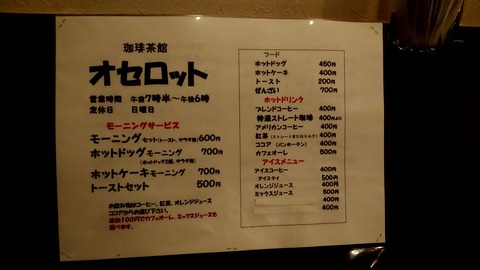 珈琲茶館
オセロット
営業時間 午前7時半〜午後6時
定休日 日曜日
モーニングサービス
モーニングセット(トースト、サラダ他)600円
ホットドッグモーニング 700円
(ホットドッグ2個、サラダ他)
ホットケーキモーニング 700円
トーストセット 500円
お飲み物はコーヒー、紅茶、オレンジジュース
ココアからお選び下さい。
追加100円でカフェオーレ、ミックスジュースも
選べます。
フード
ホットドッグ 450円
ホットケーキ 400円
トースト 200円
ぜんざい 700円
ホットドリンク
ブレンドコーヒー 400円
特選ストレート珈琲 400円より
アメリカンコーヒー 400円
紅茶(ストレートまたはミルク) 400円
ココア(バンホーテン) 400円
カフェオーレ 500円
アイスメニュー
アイスコーヒー 400円
アイスティ 500円
オレンジジュース 400円
ミックスジュース 500円
400円
400円